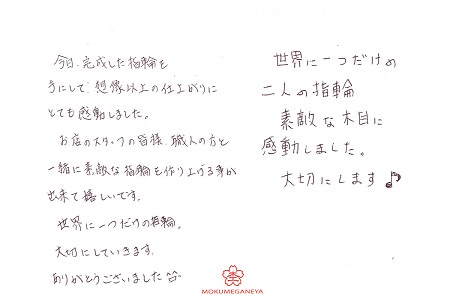 今日、完成した指輪を
手にして、想像以上の仕上がりに
とても感動しました。
お店のスタッフの皆様、職人の方と
一緒に素敵な指輪を作り上げる事が
出来て嬉しいです。
世界に一つだけの指輪。
大切にしていきます。
ありがとうございました
世界に一つだけの
二人の指輪
素敵な木目に
感動しました。
大切にします♪
MOKUMEGANEYA